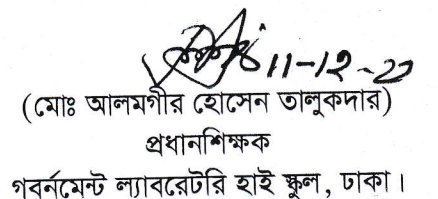 11-12-22
(মোঃ আলমগীর হোসেন তালুকদার)
প্রধানশিক্ষক
গবর্নমেন্ট ল্যাবরেটরি হাই স্কুল, ঢাকা।